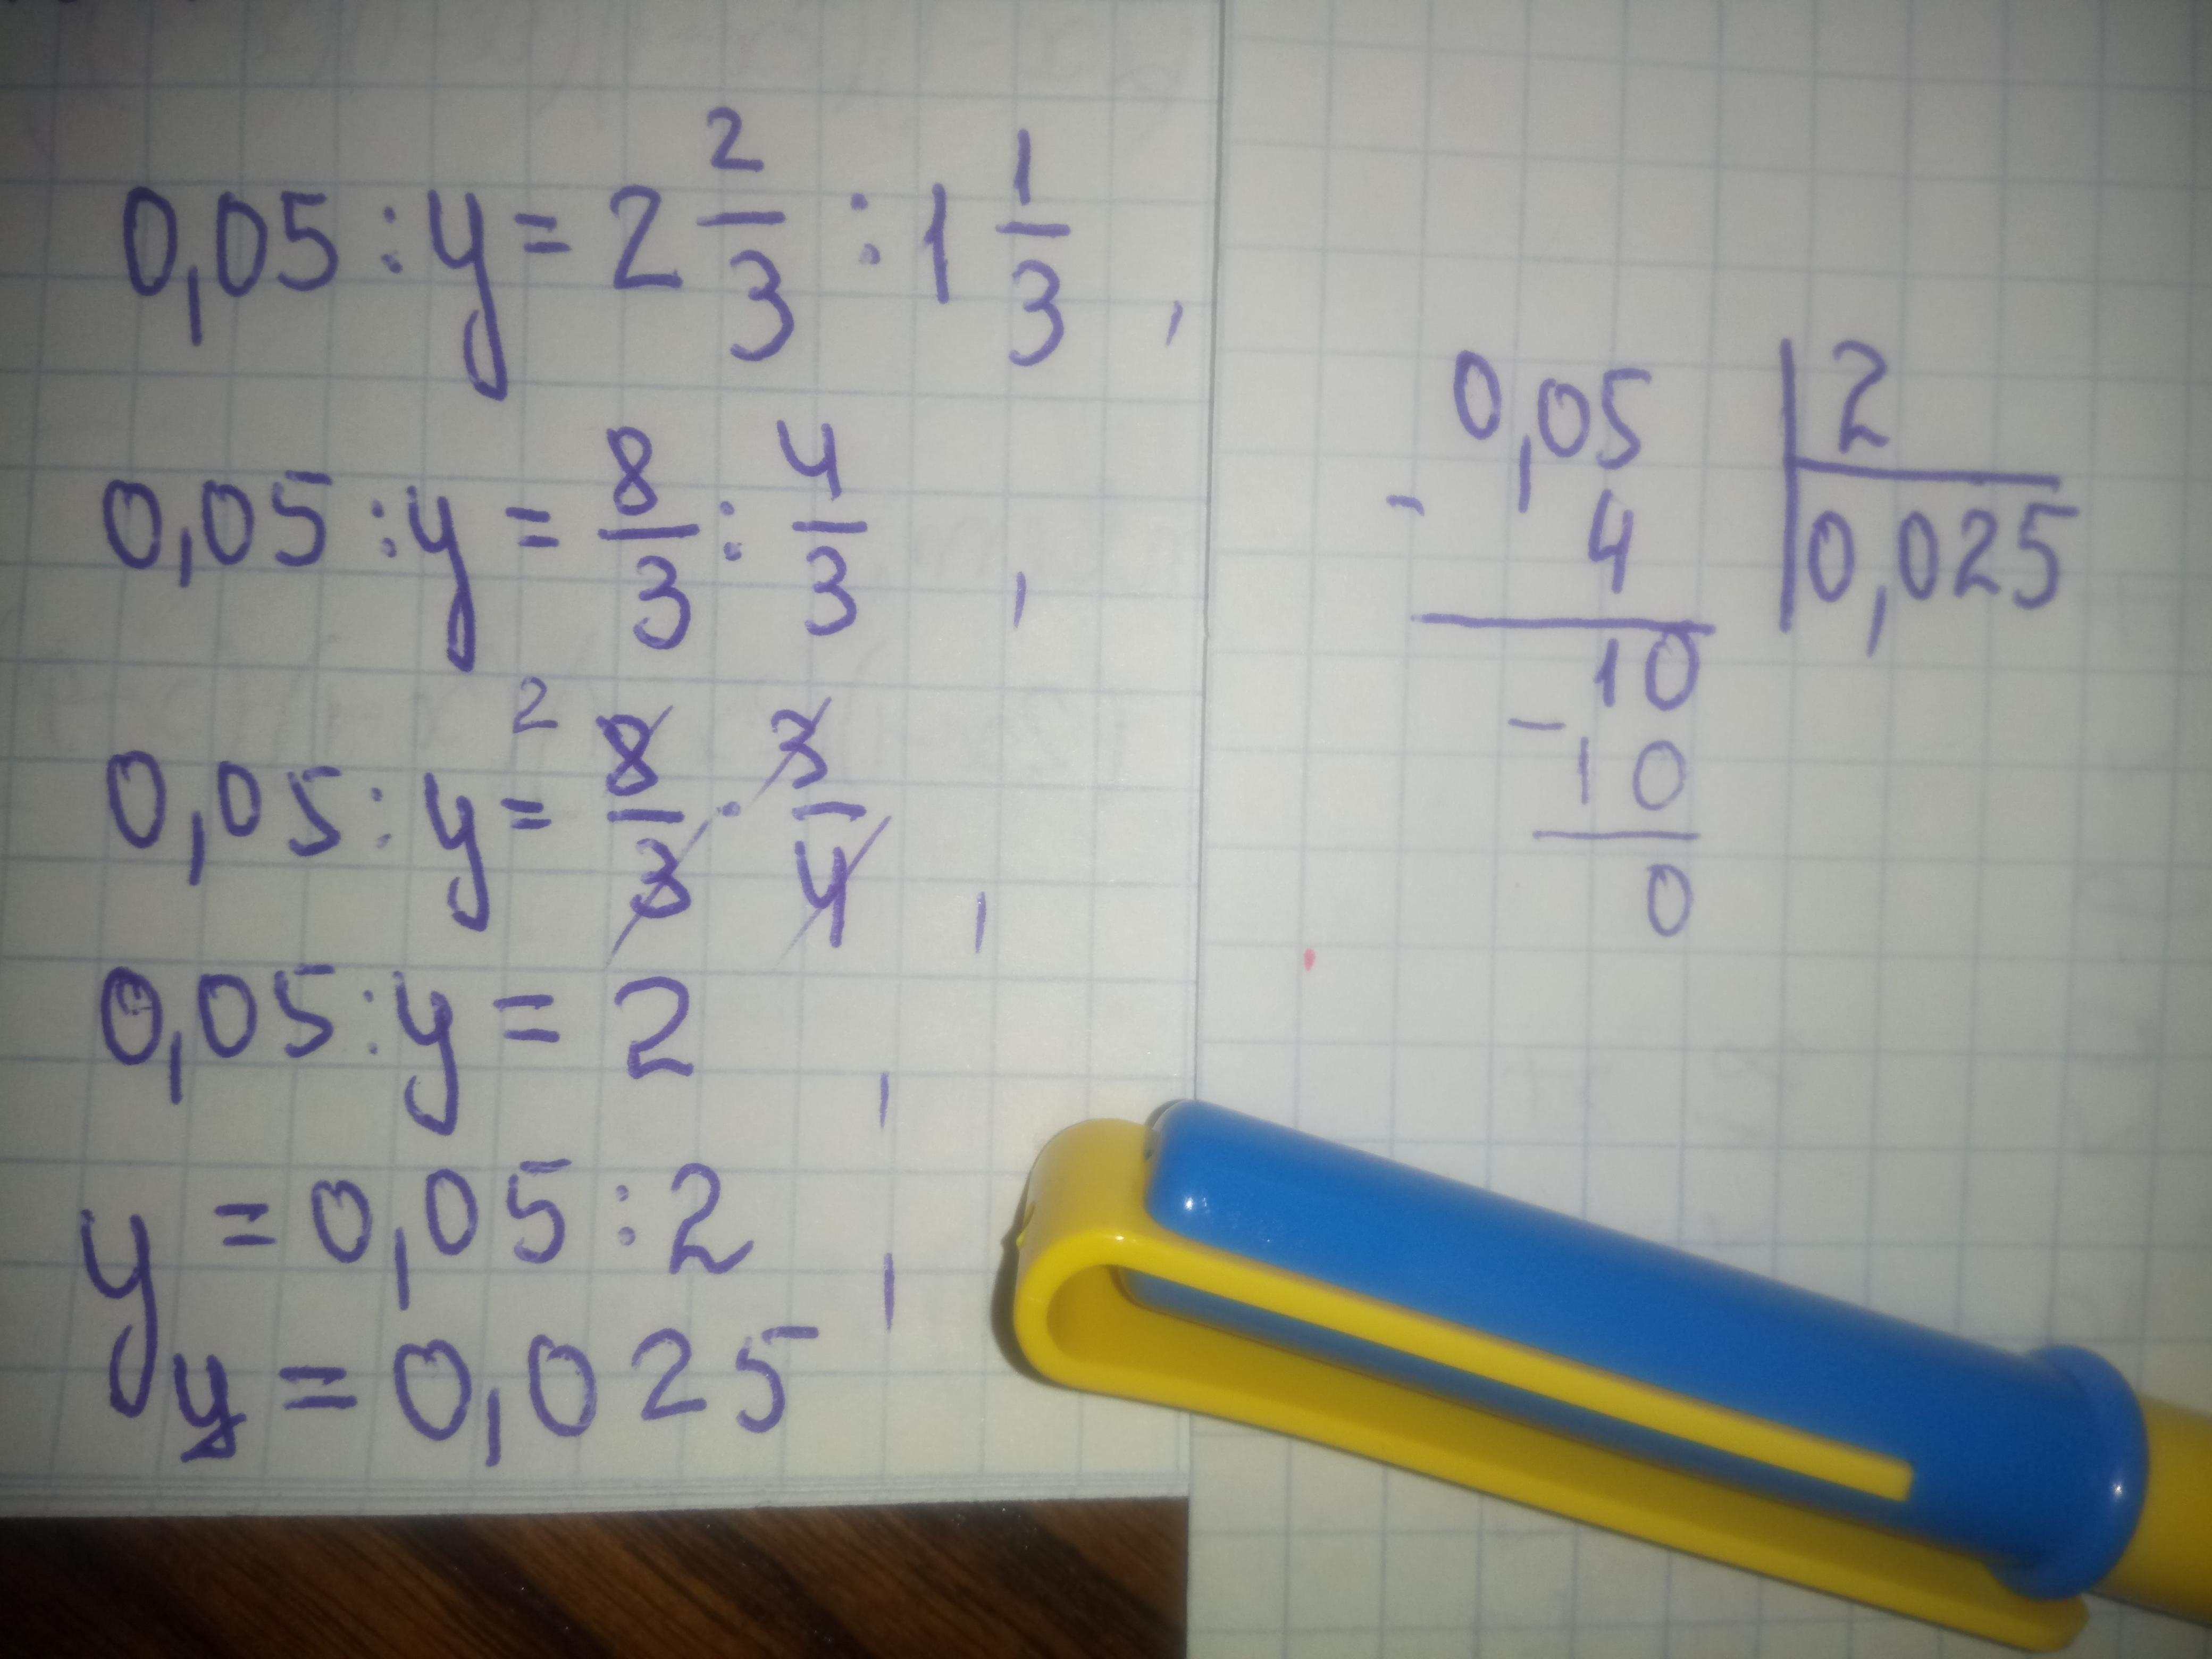 0,05 : y = 2 2/3 : 1 1/3 ,
0,05 : y = 8/3 : 4/3 ,
0,05 : y = 2 8/3 · 3/4 ,
0,05 : y = 2 ,
y = 0,05 : 2 ,
y = 0,025
0,05 | 2
- 4 | 0,025
10
- 10
0